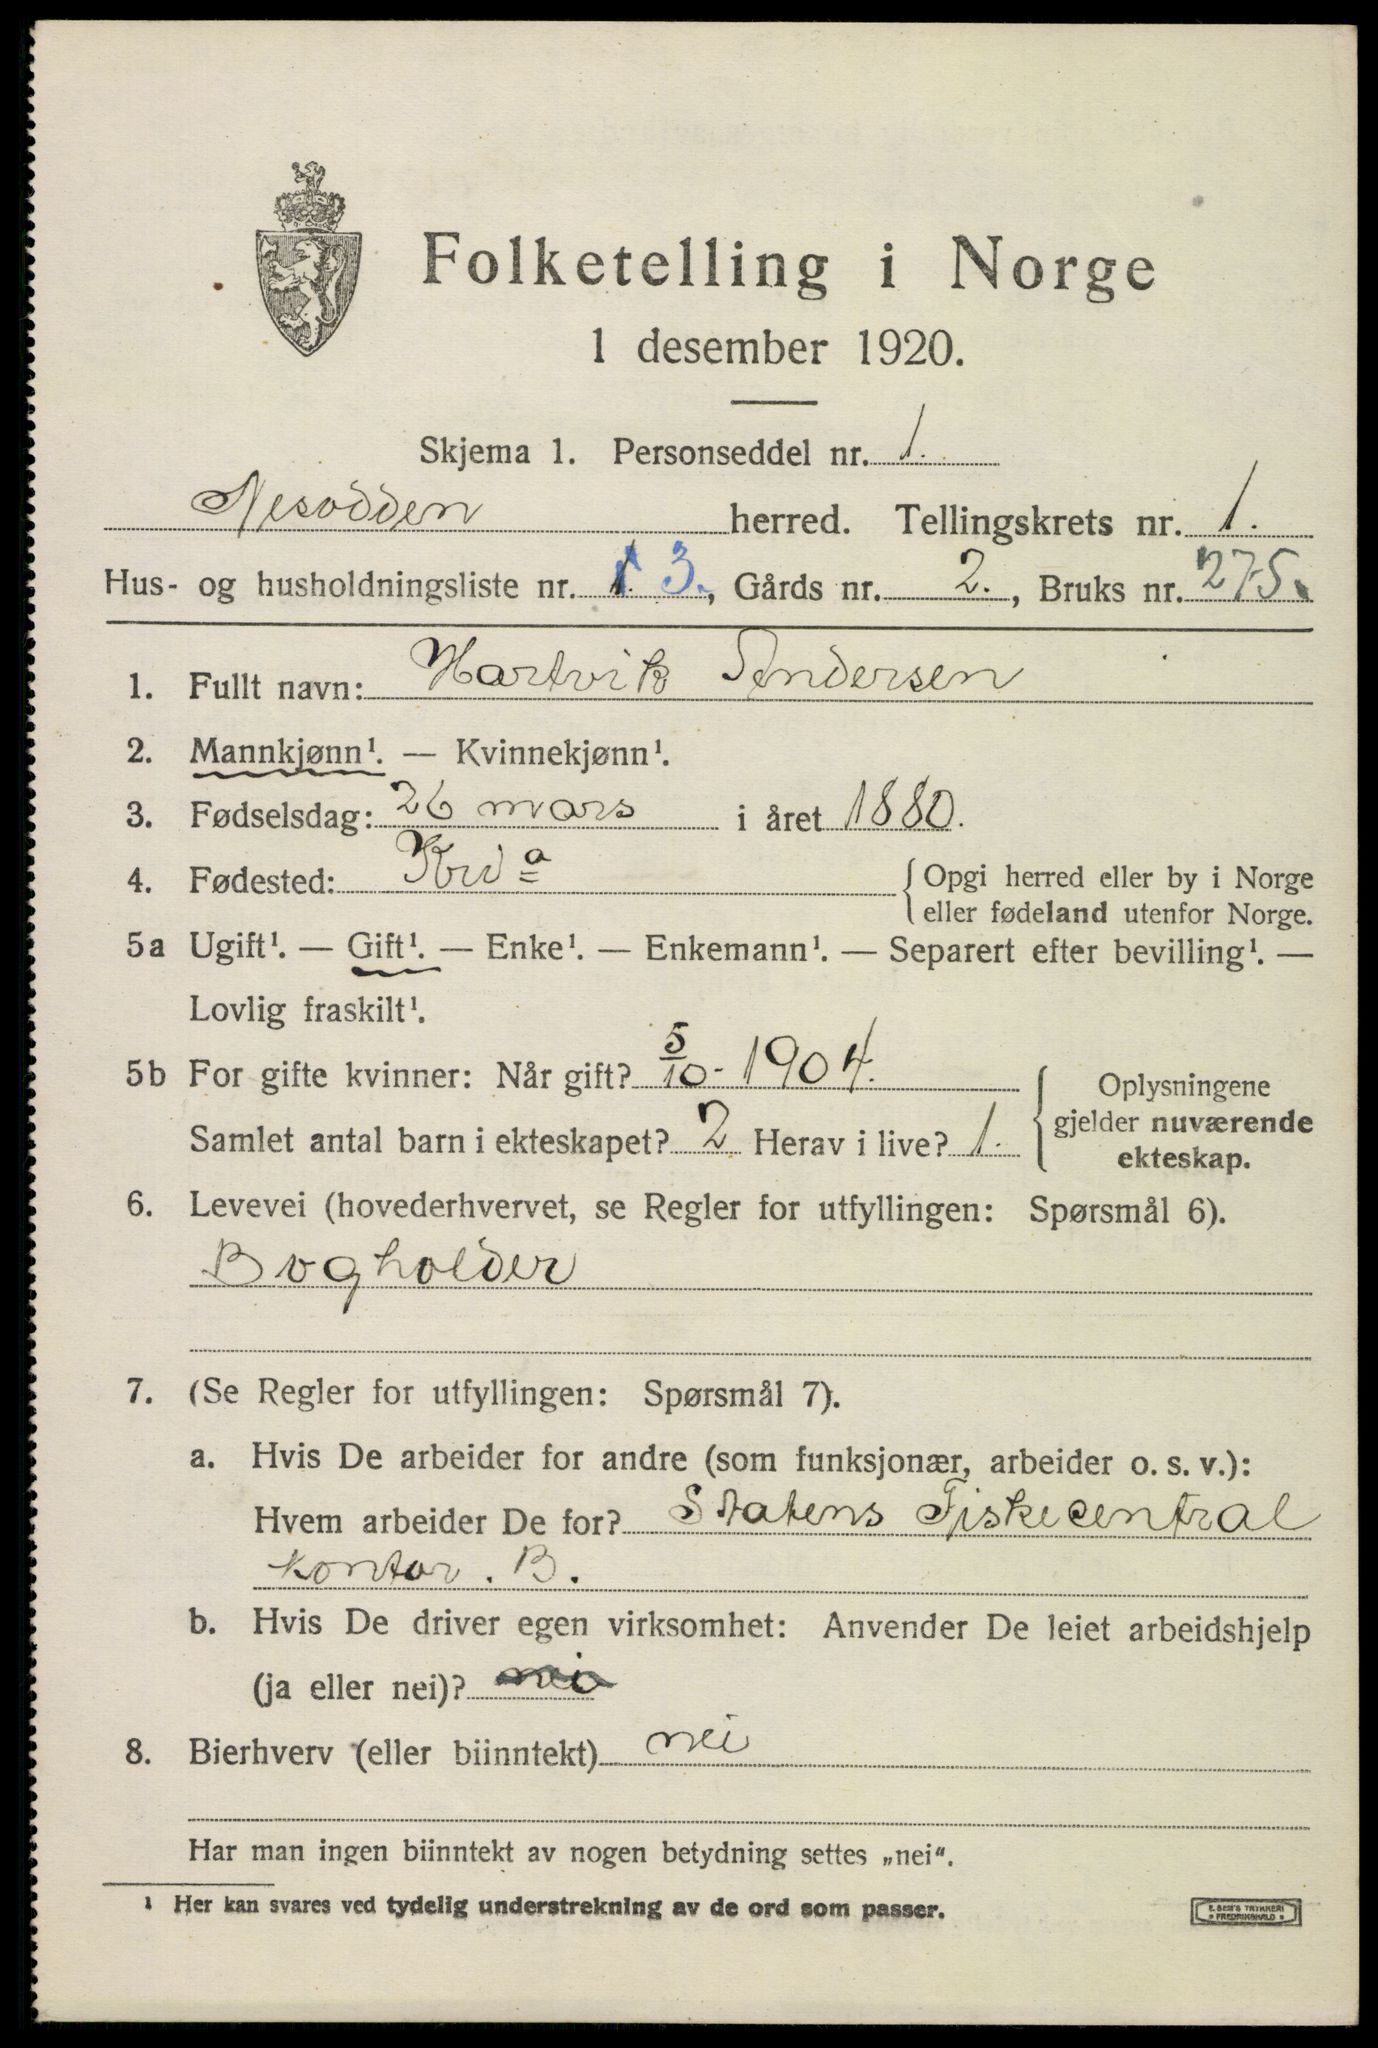 Folketelling i Norge
1 desember 1920.
Skjema 1. Personseddel nr. 1.
Nesodden herred. Tellingskrets nr. 1.
Hus- og husholdningsliste nr. 1. 3., Gårds nr. 2., Bruks nr. 275.
1. Fullt navn: Hartvik Andersen
2. Mannkjønn¹. — Kvinnekjønn¹.
3. Fødselsdag: 26 mars i året 1880.
4. Fødested: Kriª { Opgi herred eller by i Norge
eller fødeland utenfor Norge.
5a Ugift¹. — Gift¹. — Enke¹. — Enkemann¹. — Separert efter bevilling¹. —
Lovlig fraskilt¹.
5b For gifte kvinner: Når gift? 5/10 - 1904.
Samlet antal barn i ekteskapet? 2 Herav i live? 1.
{ Oplysningene
gjelder nuværende
ekteskap.
6. Levevei (hovederhvervet, se Regler for utfyllingen: Spørsmål 6).
Bogholder
7. (Se Regler for utfyllingen: Spørsmål 7).
a. Hvis De arbeider for andre (som funksjonær, arbeider o. s. v.):
Hvem arbeider De for? Statens Fiskecentral
Kontor. B.
b. Hvis De driver egen virksomhet: Anvender De leiet arbeidshjelp
(ja eller nei)? nei
8. Bierhverv (eller biinntekt) nei
Har man ingen biinntekt av nogen betydning settes „nei“.
¹ Her kan svares ved tydelig understrekning av de ord som passer.
E. SEM'S TRYKKERI
• FREDRIKSHALD •